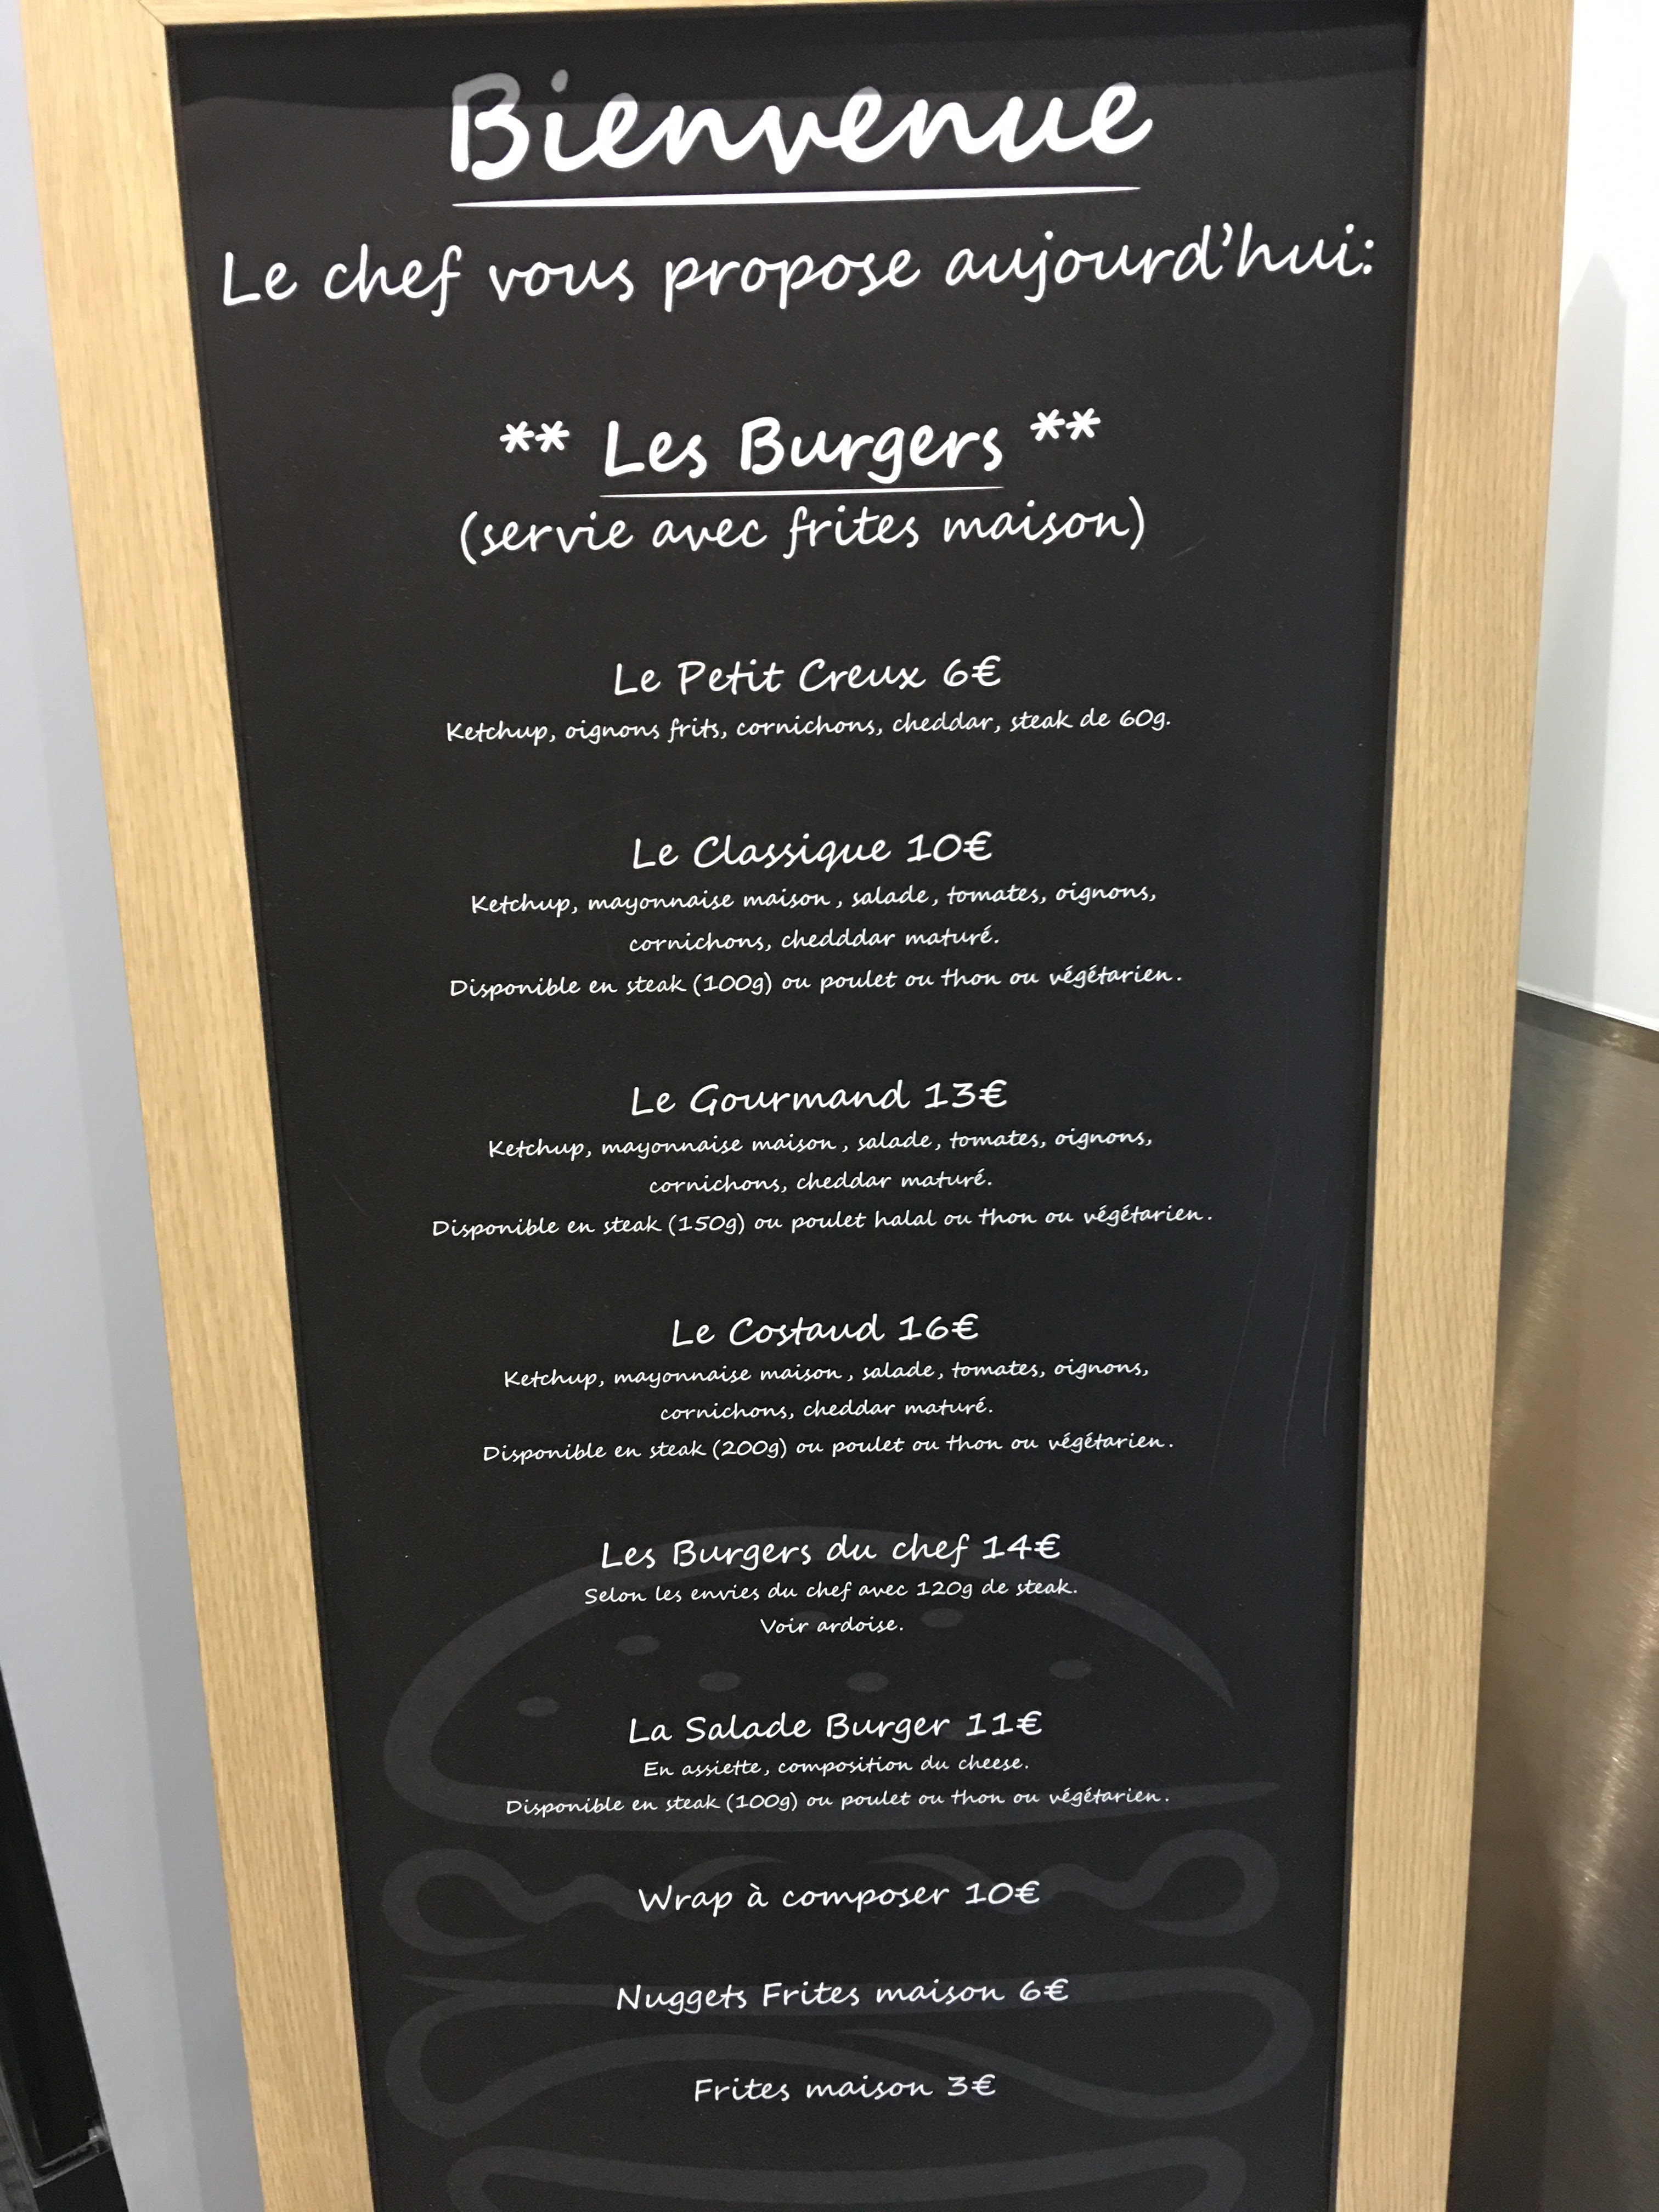 Bienvenue
Le chef vous propose aujourd'hui:
** Les Burgers **
(servie avec frites maison)
Le Petit Creux 6€
Ketchup, oignons frits, cornichons, cheddar, steak de 60g.
Le Classique 10€
Ketchup, mayonnaise maison , salade, tomates, oignons,
cornichons, chedddar maturé.
Disponible en steak (100g) ou poulet ou thon ou végétarien.
Le Gourmand 13€
Ketchup, mayonnaise maison , salade, tomates, oignons,
cornichons, cheddar maturé.
Disponible en steak (150g) ou poulet halal ou thon ou végétarien.
Le Costaud 16€
Ketchup, mayonnaise maison , salade, tomates, oignons,
cornichons, cheddar maturé.
Disponible en steak (200g) ou poulet ou thon ou végétarien.
Les Burgers du chef 14€
Selon les envies du chef avec 120g de steak.
Voir ardoise.
La Salade Burger 11€
En assiette, composition du cheese.
Disponible en steak (100g) ou poulet ou thon ou végétarien.
Wrap à composer 10€
Nuggets Frites maison 6€
Frites maison 3€